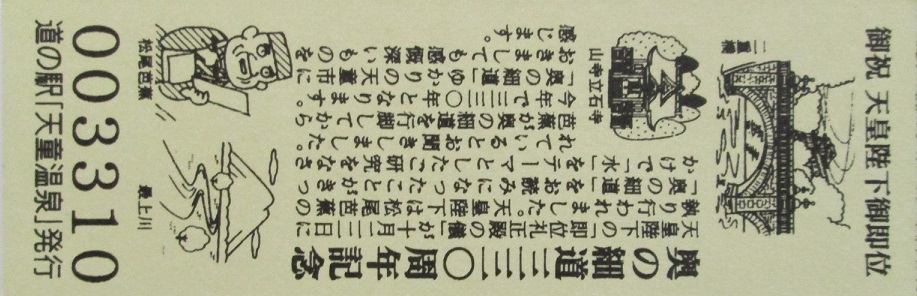 御祝 天皇陛下御即位
二重橋
奥の細道三三〇周年記念
天皇陛下の「即位礼正殿の儀」が十月二二日に
執り行われました。天皇陛下は松尾芭蕉の
「奥の細道」をお読みになったことがきっ
かけで、「水」をテーマとしたご研究をなさ
れているとお聞きしました。
芭蕉が奥の細道を行脚してから
今年で三三〇年となります。
「奥の細道」ゆかりの天童市に
おきましても感慨深いものを
感じます。
山寺立石寺
松尾芭蕉
最上川
003310
道の駅「天童温泉」発行